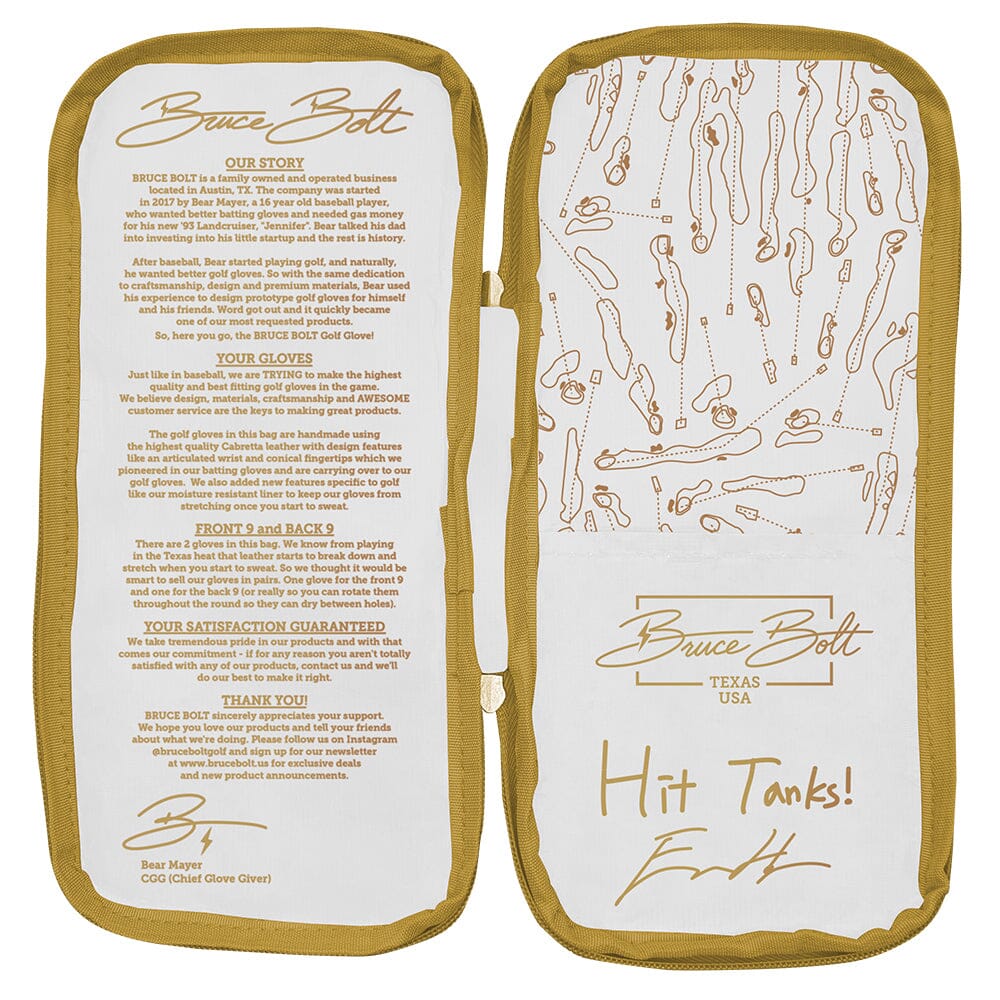 Bruce Bolt
OUR STORY
BRUCE BOLT is a family owned and operated business
located in Austin, TX. The company was started
in 2017 by Bear Mayer, a 16 year old baseball player,
who wanted better batting gloves and needed gas money
for his new '93 Landcruiser, "Jennifer". Bear talked his dad
into investing into his little startup and the rest is history.
After baseball, Bear started playing golf, and naturally,
he wanted better golf gloves. So with the same dedication
to craftsmanship, design and premium materials, Bear used
his experience to design prototype golf gloves for himself
and his friends. Word got out and it quickly became
one of our most requested products.
So, here you go, the BRUCE BOLT Golf Glove!
YOUR GLOVES
Just like in baseball, we are TRYING to make the highest
quality and best fitting golf gloves in the game.
We believe design, materials, craftsmanship and AWESOME
customer service are the keys to making great products.
The golf gloves in this bag are handmade using
the highest quality Cabretta leather with design features
like an articulated wrist and conical fingertips which we
pioneered in our batting gloves and are carrying over to our
golf gloves. We also added new features specific to golf
like our moisture resistant liner to keep our gloves from
stretching once you start to sweat.
FRONT 9 and BACK 9
There are 2 gloves in this bag. We know from playing
in the Texas heat that leather starts to break down and
stretch when you start to sweat. So we thought it would be
smart to sell our gloves in pairs. One glove for the front 9
and one for the back 9 (or really so you can rotate them
throughout the round so they can dry between holes).
YOUR SATISFACTION GUARANTEED
We take tremendous pride in our products and with that
comes our commitment - if for any reason you aren't totally
satisfied with any of our products, contact us and we'll
do our best to make it right.
THANK YOU!
BRUCE BOLT sincerely appreciates your support.
We hope you love our products and tell your friends
about what we're doing. Please follow us on Instagram
@bruceboltgolf and sign up for our newsletter
at www.brucebolt.us for exclusive deals
and new product announcements.
Bear Mayer
CGG (Chief Glove Giver)
Bruce Bolt
TEXAS
USA
Hit Tanks!